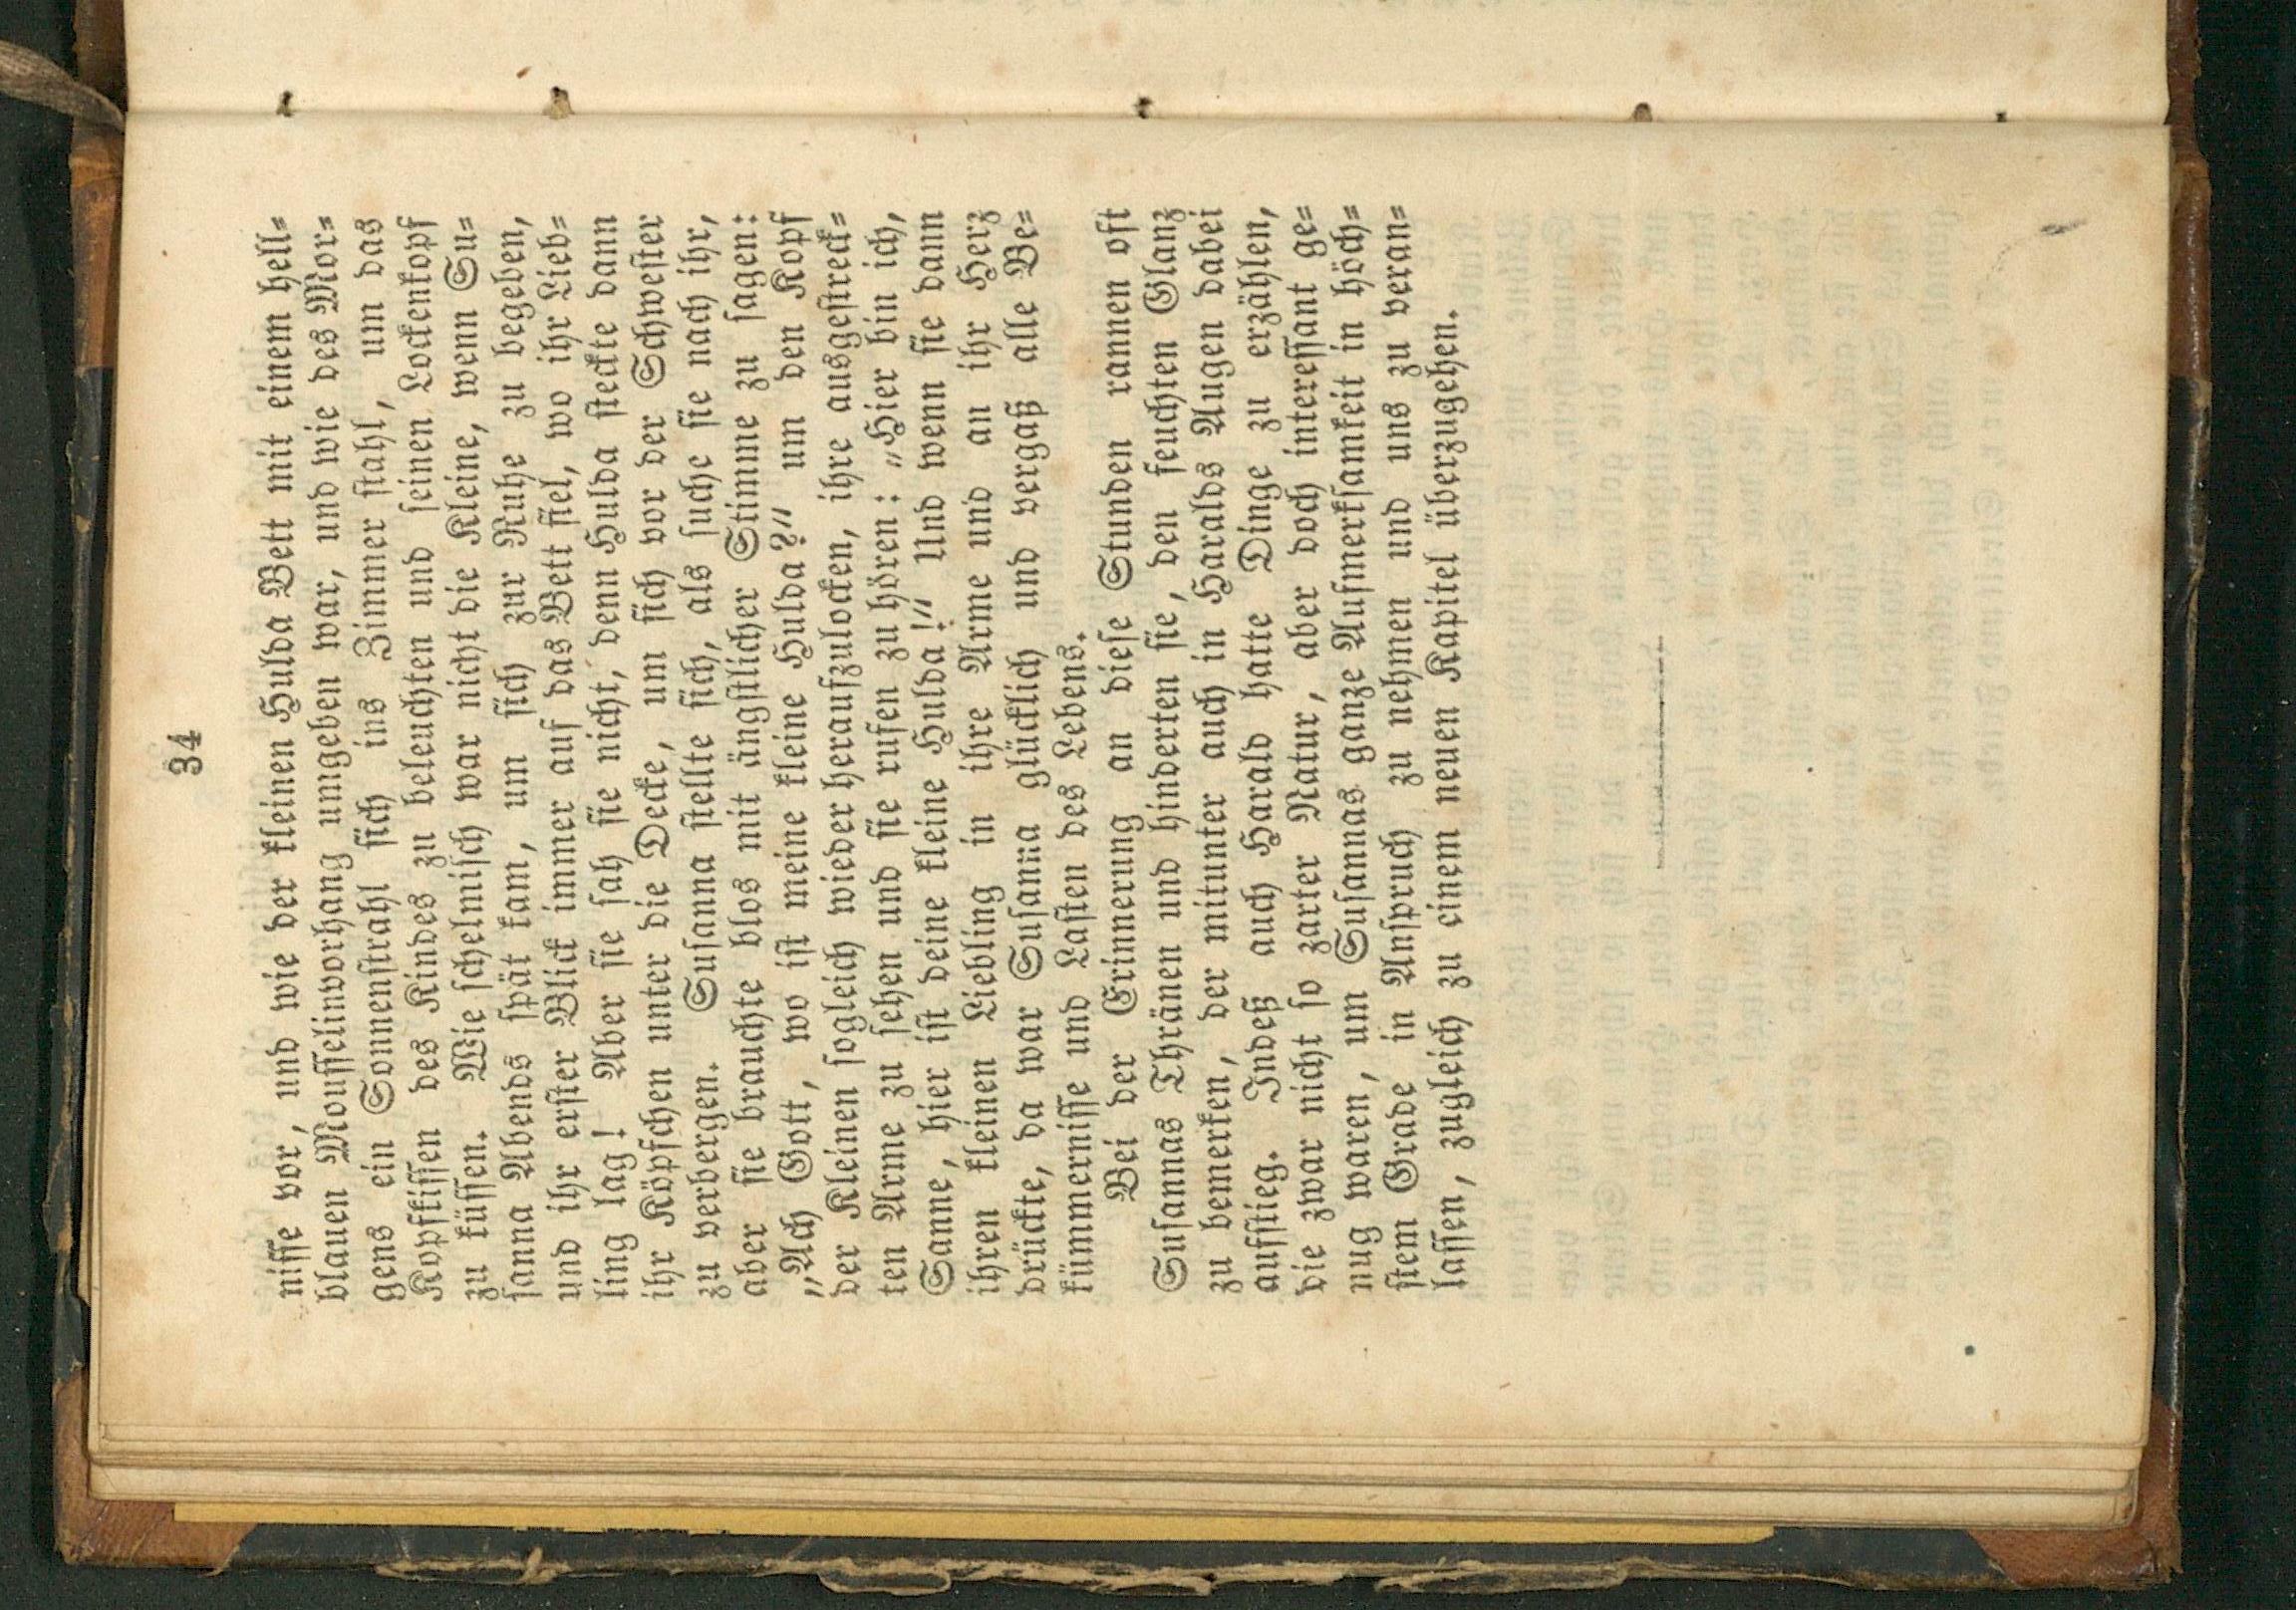 34
niſſe vor, und wie der kleinen Hulda Bett mit einem hell⸗
blauen Mouſſelinvorhang umgeben war, und wie des Mor⸗
gens ein Sonnenſtrahl ſich ins Zimmer ſtahl, um das
Kopfkiſſen des Kindes zu beleuchten und ſeinen Lockenkopf
zu küſſen. Wie ſchelmiſch war nicht die Kleine, wenn Su⸗
ſanna Abends ſpät kam, um ſich zur Ruhe zu begeben,
und ihr erſter Blick immer auf das Bett fiel, wo ihr Lieb⸗
ling lag! Aber ſie ſah ſie nicht, denn Hulda ſteckte dann
ihr Köpfchen unter die Decke, um ſich vor der Schweſter
zu verbergen. Suſanna ſtellte ſich, als ſuche ſie nach ihr,
aber ſie brauchte blos mit ängſtlicher Stimme zu ſagen:
„Ach Gott, wo iſt meine kleine Hulda?“ um den Kopf
der Kleinen ſogleich wieder heraufzulocken, ihre ausgeſtreck⸗
ten Arme zu ſehen und ſie rufen zu hören: „Hier bin ich,
Sanne, hier iſt deine kleine Hulda!“ Und wenn ſie dann
ihren kleinen Liebling in ihre Arme und an ihr Herz
drückte, da war Suſanna glücklich und vergaß alle Be⸗
kümmerniſſe und Laſten des Lebens.
Bei der Erinnerung an dieſe Stunden rannen oft
Suſannas Thränen und hinderten ſie, den feuchten Glanz
zu bemerken, der mitunter auch in Haralds Augen dabei
aufſtieg. Indeß auch Harald hatte Dinge zu erzählen,
die zwar nicht ſo zarter Natur, aber doch intereſſant ge⸗
nug waren, um Suſannas ganze Aufmerkſamkeit in höch⸗
ſtem Grade in Anſpruch zu nehmen und uns zu veran⸗
laſſen, zugleich zu einem neuen Kapitel überzugehen.